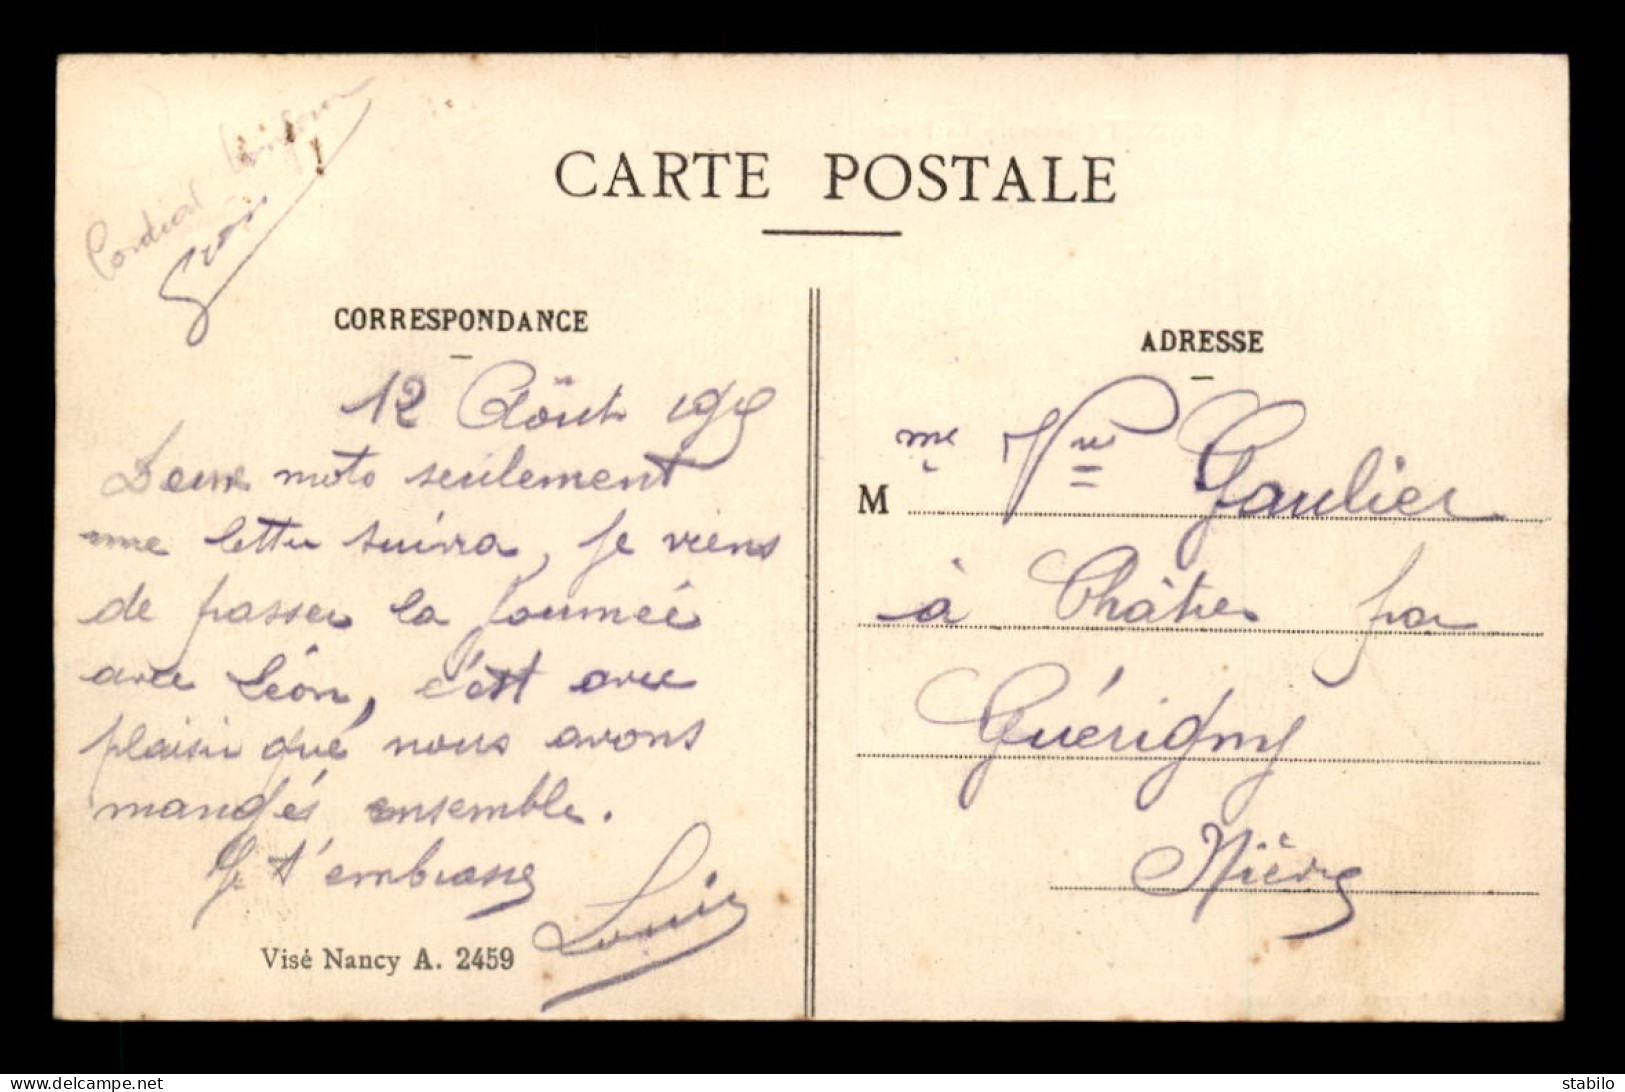 CARTE POSTALE
Cordial
CORRESPONDANCE
12 Août
Deux mots seulement
une lettre suivra, je viens
de passer la journeé
avec Léon, c'est avec
plaisir que nous avons
mangés ensemble.
Je t'embrasse
Louis
Visé Nancy A. 2459
ADRESSE
M me Vve Gaulier
à Châtres par
Guérigny
Nièvre
delcampe.net
stabilo